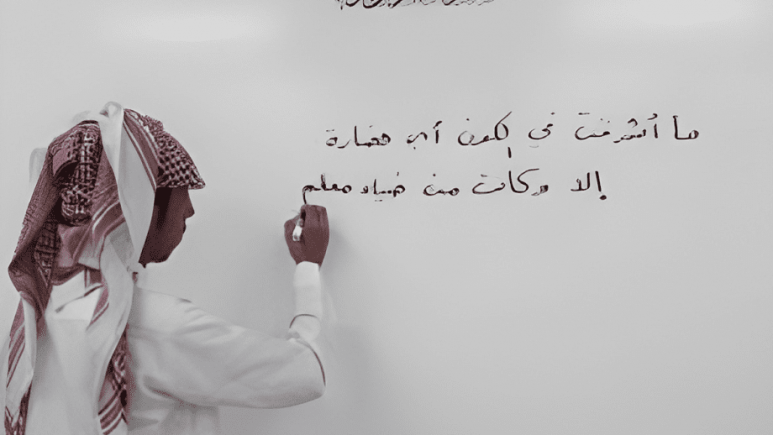 ما أشرقت في الكون أي حضارة
إلا وكانت من ضياء معلم